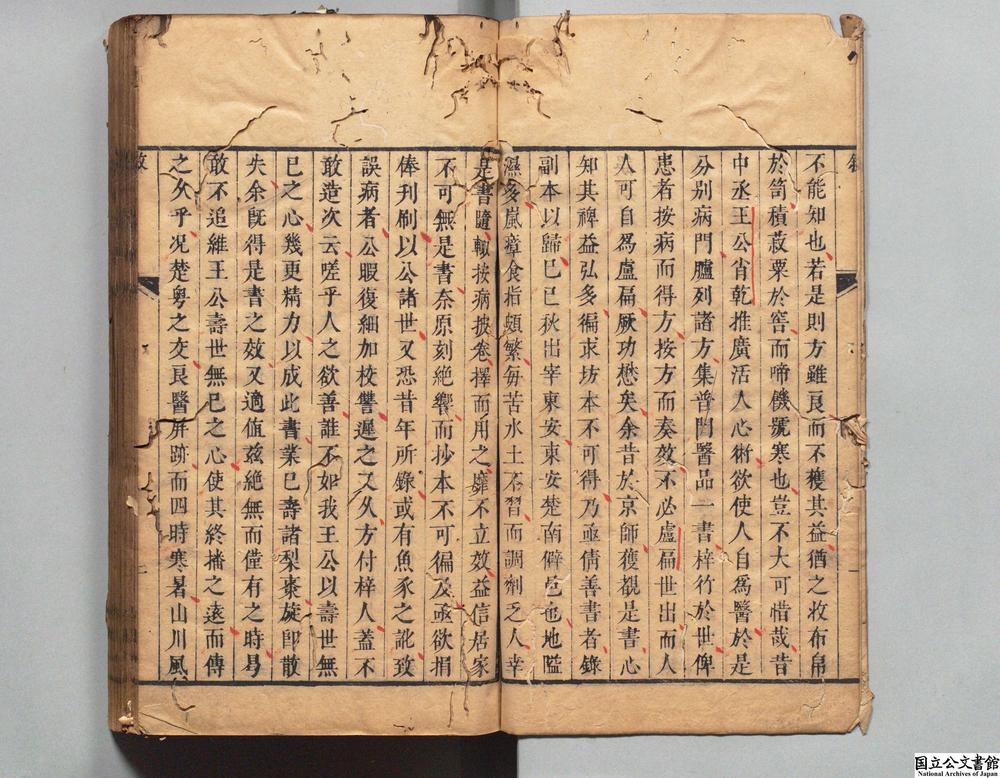 不能知也若是則方雖良而不穫其益猶之收布帛
於笥積菽粟於窖而啼饑號寒也豈不大可惜哉昔
中丞王公肖乾推廣活人心術欲使人自為醫於是
分別病門臚列諸方集普門醫品一書梓竹於世俾
患者按病而得方按方而奏效不必盧扁世出而人
人可自為盧扁厥功懋矣余昔於京師獲覩是書心
知其裨益弘多徧求坊本不可得乃亟倩善書者錄
副本以歸己巳秋出宰東安東安楚南僻邑也地隘
濕多嵐瘴食指頗繁每苦水土不習而調劑乏人幸
是書隨轍按病披卷擇而用之靡不立效益信居家
不可無是書奈原刻絶響而抄本不可徧及亟欲捐
俸刋刷以公諸世又恐昔年所錄或有魚豕之訛致
誤病者公暇復細加校讐遲之又久方付梓人蓋不
敢造次云嗟乎人之欲善誰不如我王公以壽世無
已之心幾更精力以成此書業已壽諸梨棗旋即散
失余旣得是書之效又適值兹絶無而僅有之時曷
敢不追維王公壽世無已之心使其終播之遠而傳
之久乎况楚粤之交良醫屏跡而四時寒暑山川風
国立公文書館
National Archives of Japan